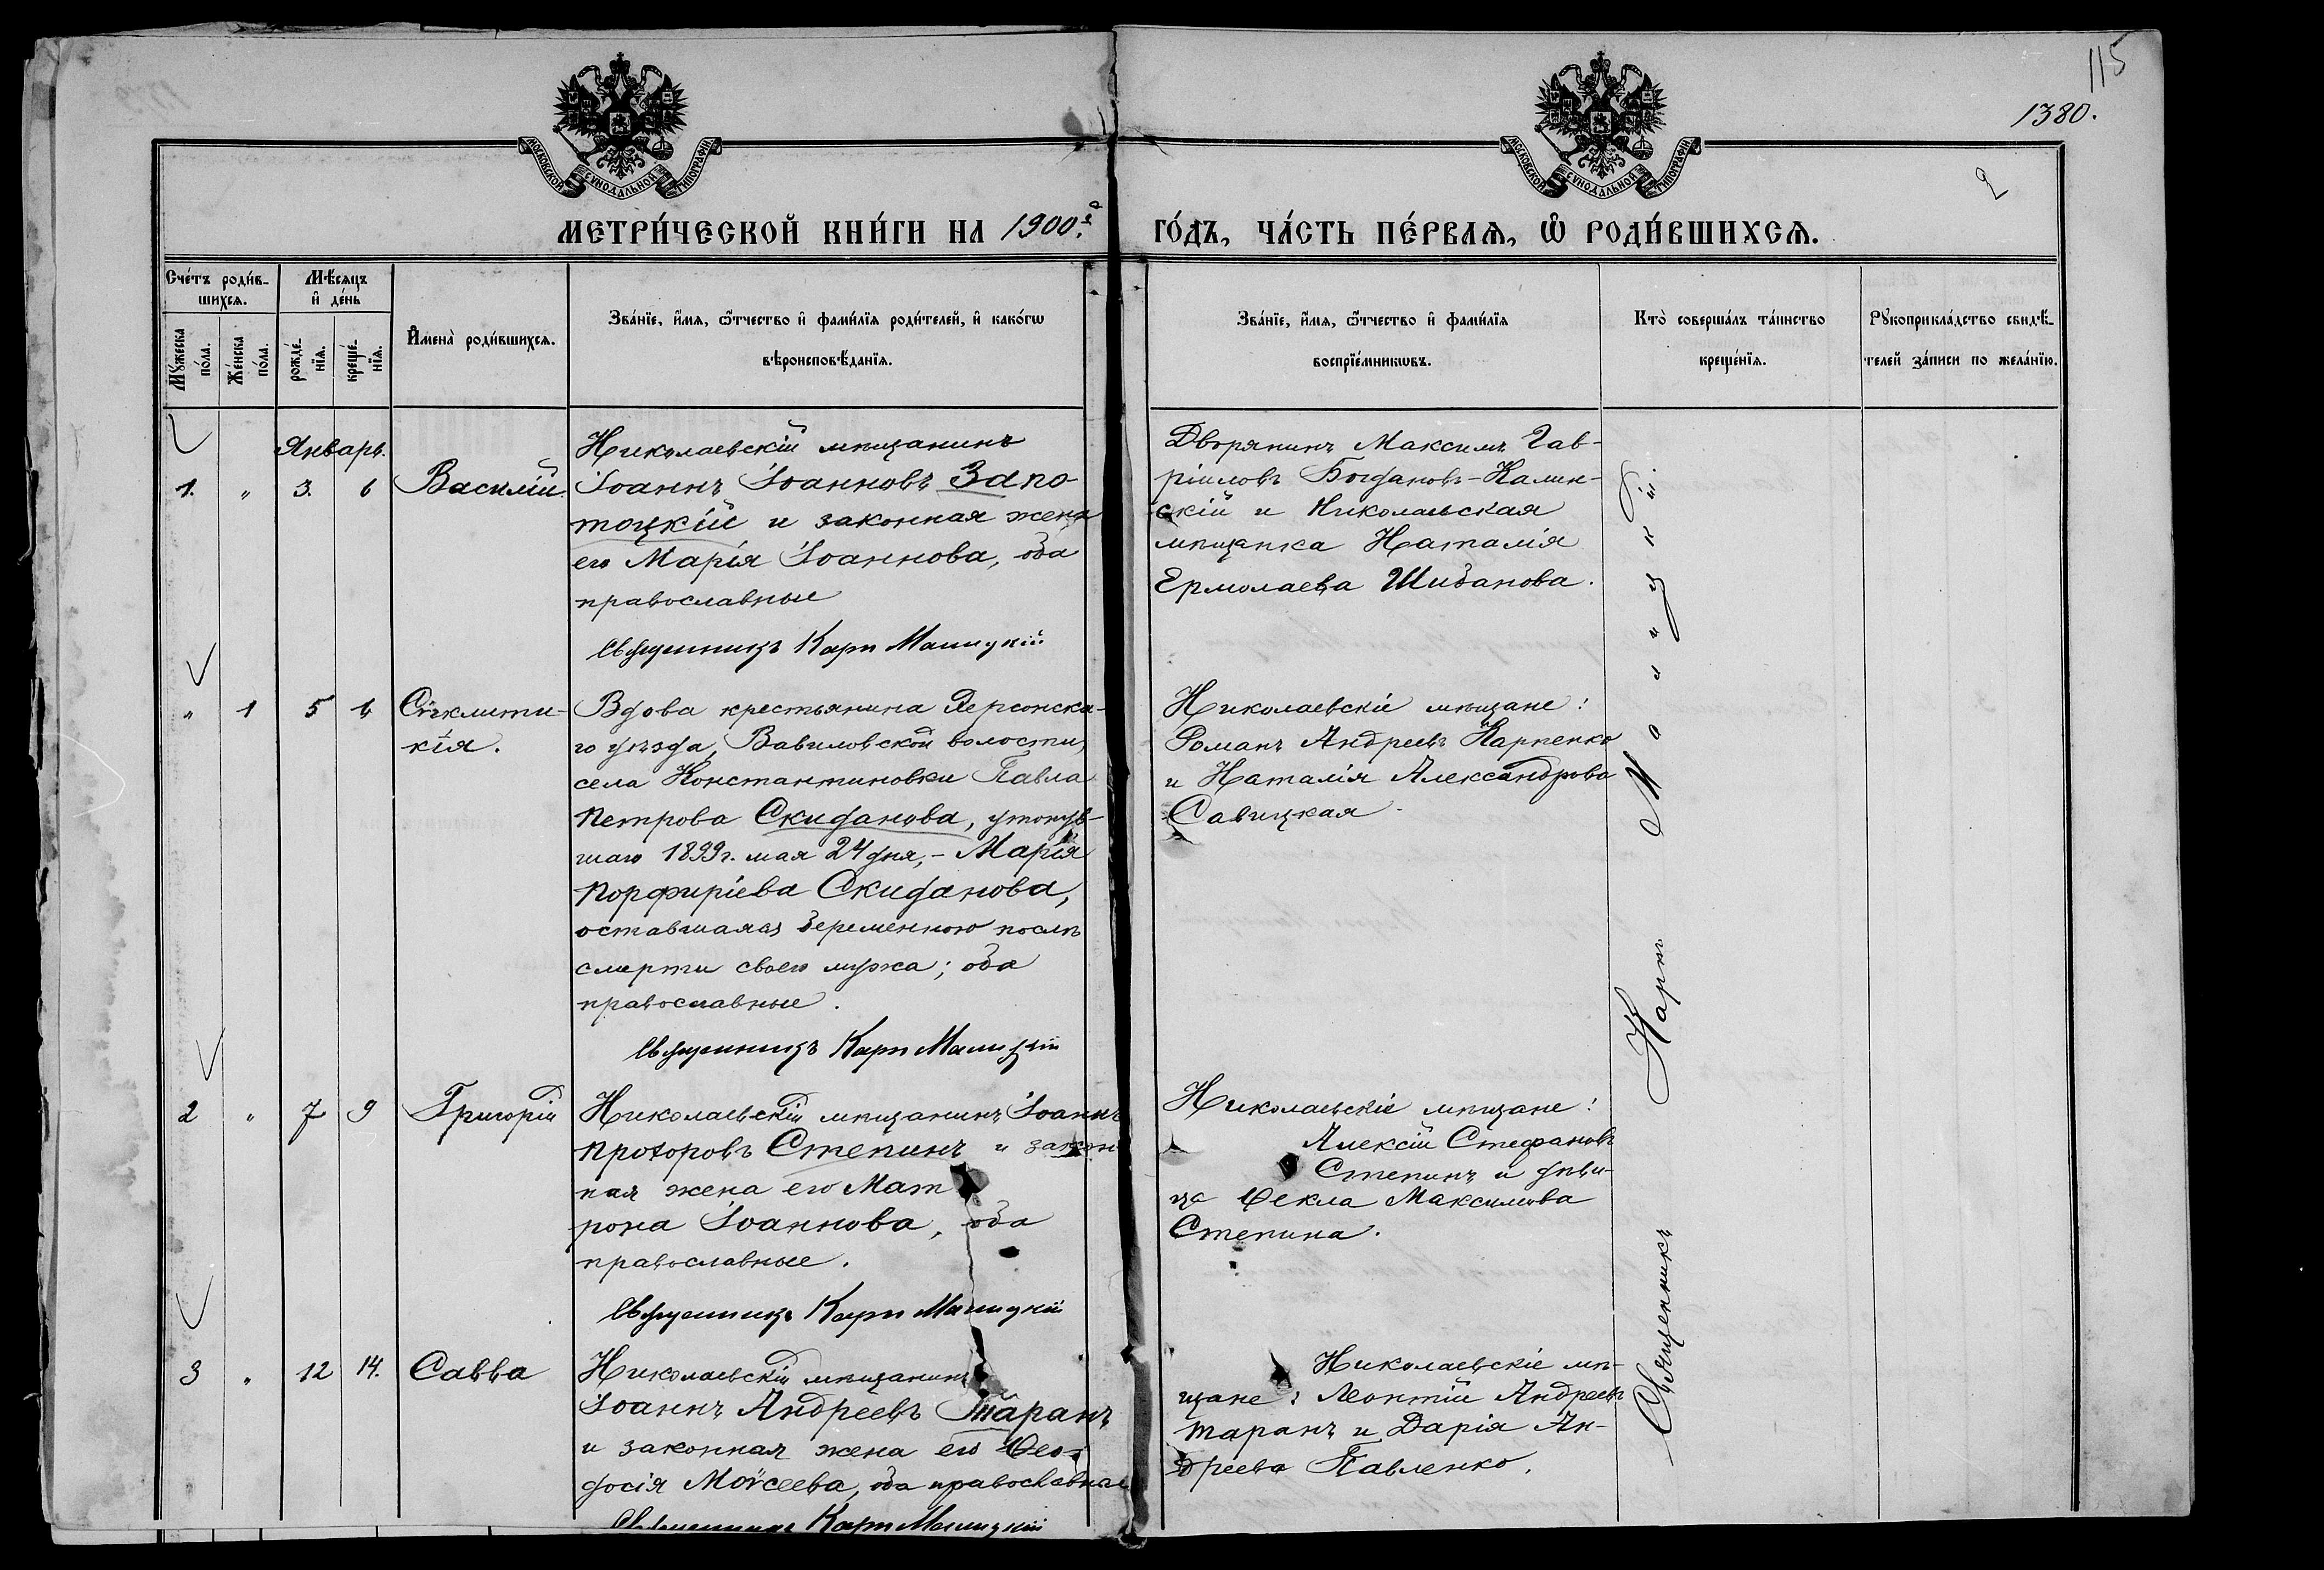 115
1380.
2
МОСКОВСКОЙ СѴНОДАЛЬНОЙ ТИПОГРАФІИ
МОСКОВСКОЙ СѴНОДАЛЬНОЙ ТИПОГРАФІИ
МЕТРИ́ЧЕСКОЙ КНИ́ГИ НА 1900й ГО́ДЪ, ЧА́СТЬ ПЕ́РВАѦ, Ѡ҆ РОДИ́ВШИХСѦ.
Сче́тъ роди́в-
шихсѧ.
Мꙋ́жеска по́ла.
Же́нска по́ла.
Мѣ́сѧцъ
и҆ де́нь
рожде́-
нїѧ.
креще́-
нїѧ.
И҆мена̀ роди́вшихсѧ.
Зва́нїе, и҆́мѧ, ѻ҆́тчество и҆ фами́лїѧ роди́телей, и҆ како́гѡ
вѣроисповѣ́данїѧ.
Зва́нїе, и҆́мѧ, ѻ҆́тчество и҆ фами́лїѧ
воспрїе́мникѡвъ.
Кто̀ соверша́лъ та́инство
креще́нїѧ.
Рꙋкоприкла́дство свидѣ́-
телей за́писи по жела́нїю.
Январь.
1. " 3. 6 Василій.
Николаевскій мѣщанинъ
Іоаннъ Іоанновъ Запо-
тоцкій и законная жена
его Марія Іоаннова, оба
православные
Священникъ Карп Малицкій
Дворянинъ Максимъ Гав-
ріиловъ Богдановъ-Калин-
скій и Николаевская
мѣщанка Наталія
Ермолаева Шибанова.
" 1 5 6 Сѵнклити-
кія.
Вдова крестьянина Херсонска-
го уѣзда, Вавиловской волости,
села Константиновки Павла
Петрова Скиданова, утонув-
шаго 1899 г. мая 24 дня, - Марія
Порфиріева Скиданова,
оставшаяся беременною послѣ
смерти своего мужа; оба
православные.
Священникъ Карп Малицкій
Николаевскіе мѣщане:
Романъ Андреевъ Карпенко
и Наталія Александрова
Савицкая.
2 " 7 9 Григорій
Николаевскій мѣщанинъ Іоаннъ
Прохоровъ Степинъ и закон
ная жена его Мат
рона Іоаннова, оба
православные.
Священникъ Карп Малицкій
Николаевскіе мѣщане:
Алексій Стефановъ
Степинъ и дѣви-
ца Ѳекла Максимова
Степина.
3 " 12 14. Савва
Николаевскій мѣщанинъ
Іоаннъ Андреевъ Таранъ
и законная жена его Ѳео-
досія Моѵсеева, оба православные
Священникъ Карп Малицкій
Николаевскіе мѣ-
щане: Леонтій Андреевъ
Таранъ и Дарія Ан-
дреева Павленко.
Священникъ Карпъ Малицкій.